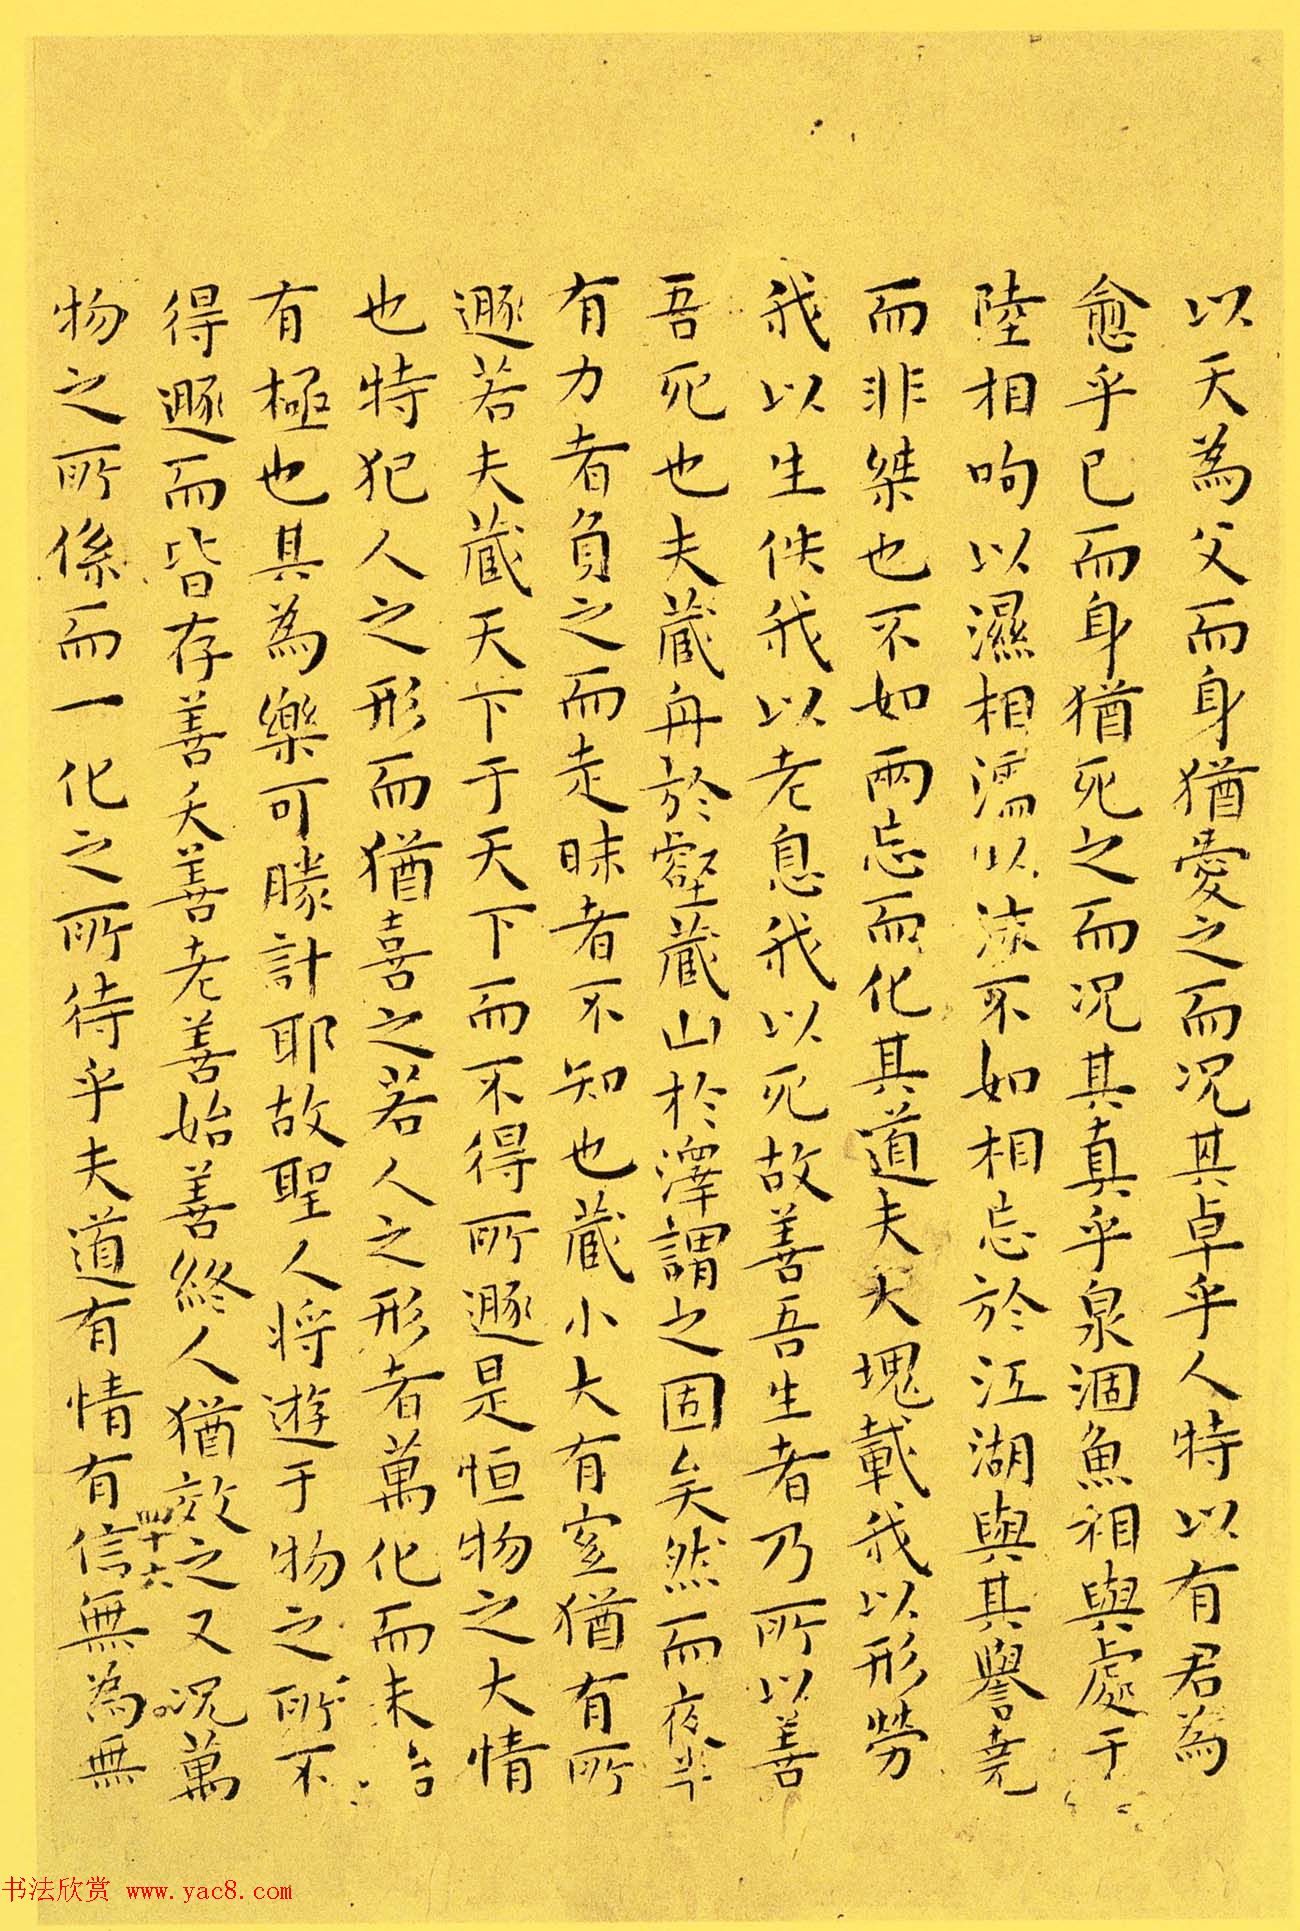 以天為父而身猶愛之而况其卓乎人特以有君為
愈乎已而身猶死之而况其真乎泉涸魚相與處于
陸相呴以濕相濡以沫不如相忘於江湖與其譽堯
而非桀也不如兩忘而化其道夫大塊載我以形勞
我以生佚我以老息我以死故善吾生者乃所以善
吾死也夫藏舟於壑藏山於澤謂之固矣然而夜半
有力者負之而走昧者不知也藏小大有宜猶有所
遯若夫藏天下于天下而不得所遯是恒物之大情
也特犯人之形而猶喜之若人之形者萬化而未台
有極也其為樂可勝計耶故聖人將遊于物之所不
得遯而皆存善夭善老善始善終人猶效之又况萬
四十六
物之所係而一化之所待乎夫道有情有信無為無
书法欣赏 www.yac8.com